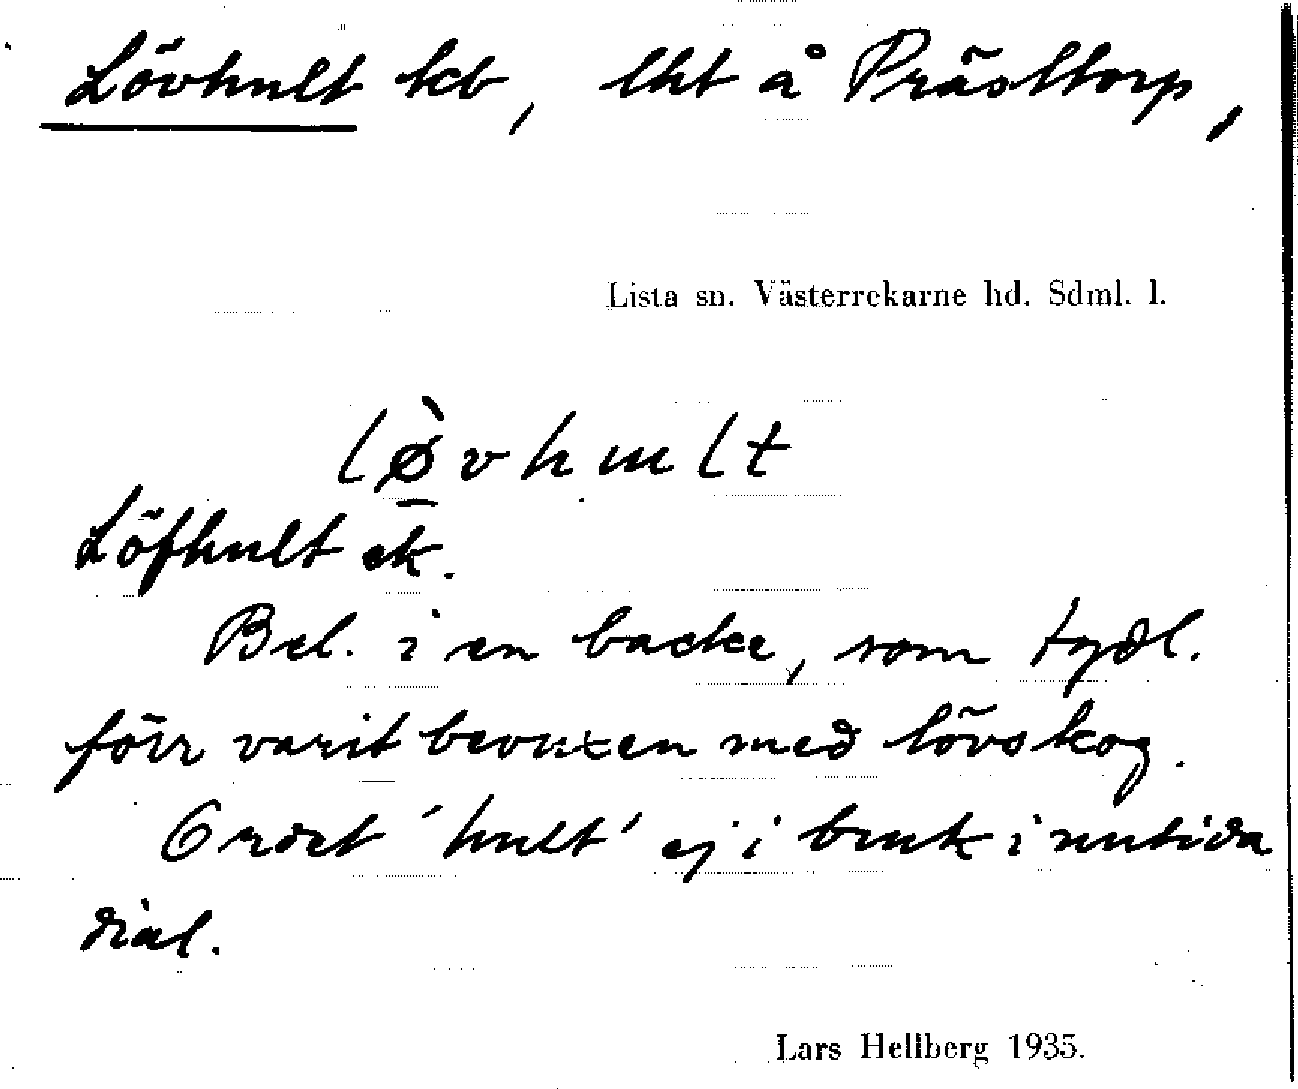 Lövhult kb, lht å Prästtorp,
Lista sn. Västerrekarne hd. Sdml. l.
lø̀vhult
Löfhult ek.
Bel. i en backe, som tydl.
förr varit bevuxen med lövskog.
Ordet 'hult' ej i bruk i nutida
dial.
Lars Hellberg 1935.